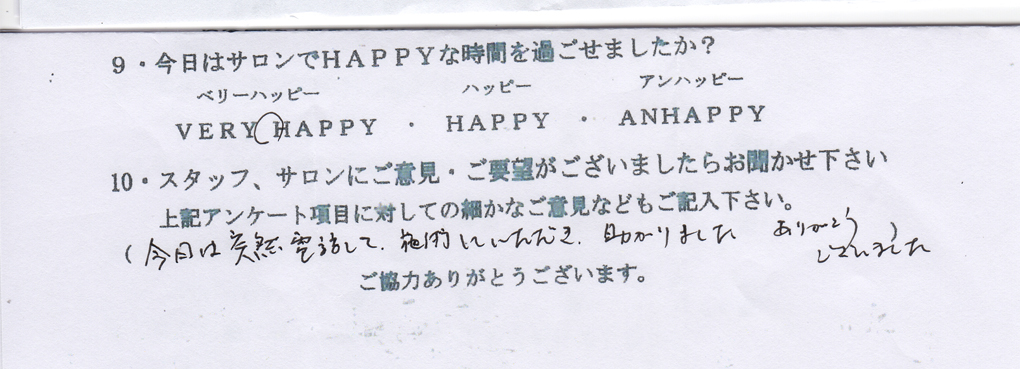 9・今日はサロンでHAPPYな時間を過ごせましたか？
ベリーハッピー ハッピー アンハッピー
VERY HAPPY ・ HAPPY ・ ANHAPPY
10・スタッフ、サロンにご意見・ご要望がございましたらお聞かせ下さい
上記アンケート項目に対しての細かなご意見などもご記入下さい。
(今日は突然電話して、施術していただき、助かりました ありがとう
ございました)
ご協力ありがとうございます。